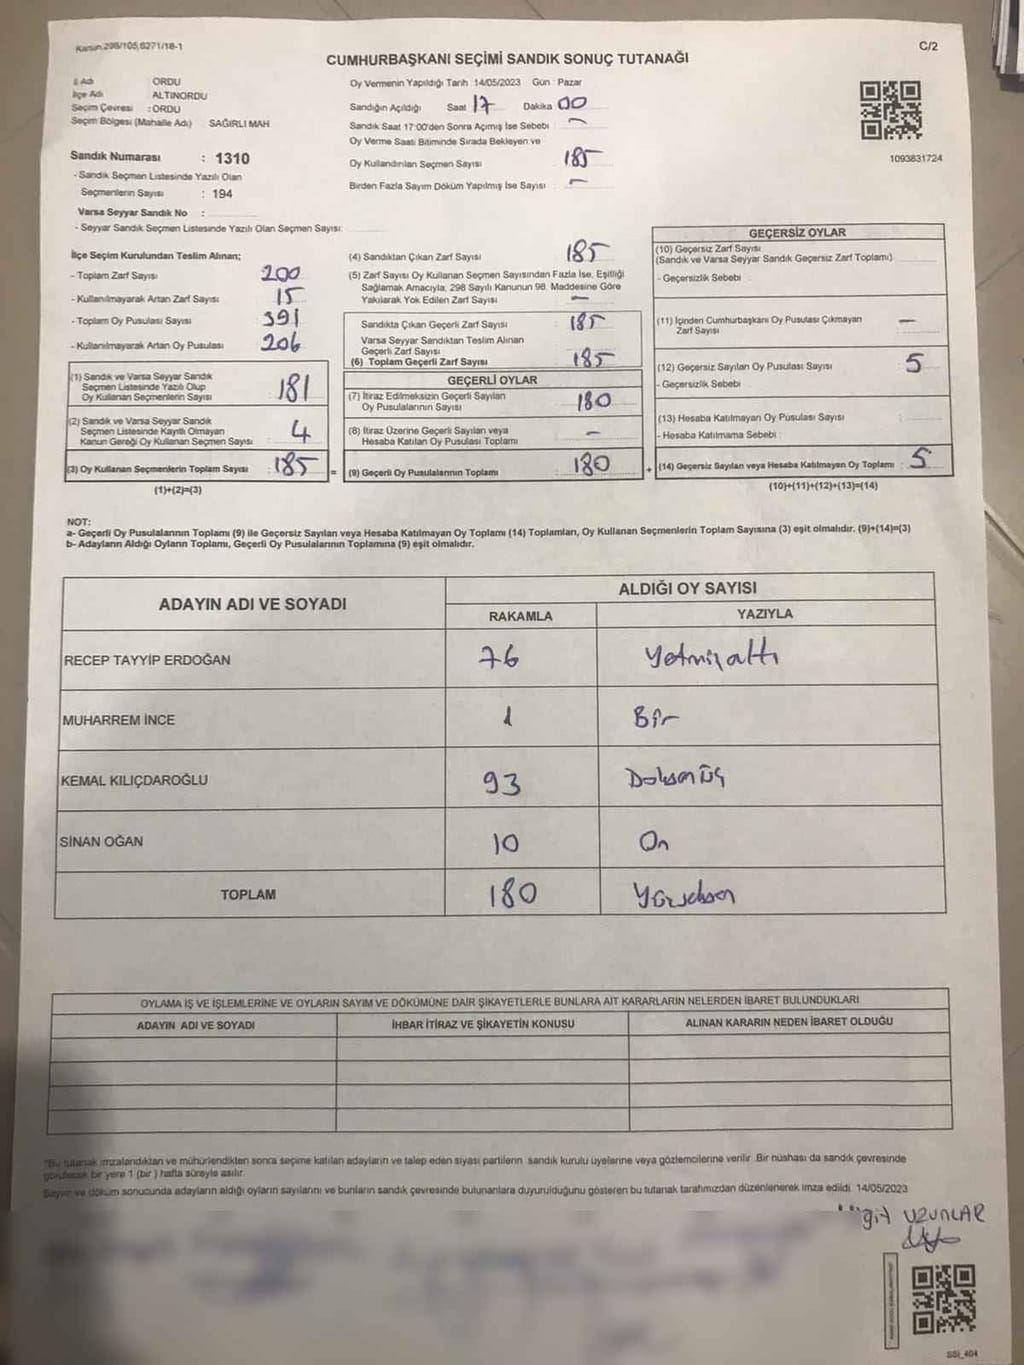 Kanun.298/105,6271/18-1
C/2
CUMHURBAŞKANI SEÇİMİ SANDIK SONUÇ TUTANAĞI
İl Adı ORDU
İlçe Adı ALTINORDU
Seçim Çevresi : ORDU
Seçim Bölgesi (Mahalle Adı) SAĞIRLI MAH.
Sandık Numarası : 1310
- Sandık Seçmen Listesinde Yazılı Olan
Seçmenlerin Sayısı : 194
Varsa Seyyar Sandık No :
- Seyyar Sandık Seçmen Listesinde Yazılı Olan Seçmen Sayısı:
Oy Vermenin Yapıldığı Tarih : 14/05/2023 Gün : Pazar
Sandığın Açıldığı Saat 17 Dakika 00
Sandık Saat 17:00'den Sonra Açımış İse Sebebi : -
Oy Verme Saati Bitiminde Sırada Bekleyen ve
Oy Kullandırılan Seçmen Sayısı 185
Birden Fazla Sayım Döküm Yapılmış İse Sayısı : -
1093831724
İlçe Seçim Kurulundan Teslim Alınan;
- Toplam Zarf Sayısı 200
- Kullanılmayarak Artan Zarf Sayısı 15
- Toplam Oy Pusulası Sayısı 391
- Kullanılmayarak Artan Oy Pusulası 206
(1) Sandık ve Varsa Seyyar Sandık
Seçmen Listesinde Yazılı Olup
Oy Kullanan Seçmenlerin Sayısı 181
(2) Sandık ve Varsa Seyyar Sandık
Seçmen Listesinde Kayıtlı Olmayan
Kanun Gereği Oy Kullanan Seçmen Sayısı 4
(3) Oy Kullanan Seçmenlerin Toplam Sayısı : 185 =
(1)+(2)=(3)
(4) Sandıktan Çıkan Zarf Sayısı 185
(5) Zarf Sayısı Oy Kullanan Seçmen Sayısından Fazla İse, Eşitliği
Sağlamak Amacıyla, 298 Sayılı Kanunun 98. Maddesine Göre
Yakılarak Yok Edilen Zarf Sayısı : -
Sandıkta Çıkan Geçerli Zarf Sayısı : 185
Varsa Seyyar Sandıktan Teslim Alınan
Geçerli Zarf Sayısı
(6) Toplam Geçerli Zarf Sayısı : 185
GEÇERLİ OYLAR
(7) İtiraz Edilmeksizin Geçerli Sayılan
Oy Pusulalarının Sayısı : 180
(8) İtiraz Üzerine Geçerli Sayılan veya
Hesaba Katılan Oy Pusulası Toplamı : -
(9) Geçerli Oy Pusulalarının Toplamı : 180 +
GEÇERSİZ OYLAR
(10) Geçersiz Zarf Sayısı
(Sandık ve Varsa Seyyar Sandık Geçersiz Zarf Toplamı)
- Geçersizlik Sebebi :
(11) İçinden Cumhurbaşkanı Oy Pusulası Çıkmayan
Zarf Sayısı -
(12) Geçersiz Sayılan Oy Pusulası Sayısı 5
- Geçersizlik Sebebi
(13) Hesaba Katılmayan Oy Pusulası Sayısı
- Hesaba Katılmama Sebebi :
(14) Geçersiz Sayılan veya Hesaba Katılmayan Oy Toplamı : 5
(10)+(11)+(12)+(13)=(14)
NOT:
a- Geçerli Oy Pusulalarının Toplamı (9) ile Geçersiz Sayılan veya Hesaba Katılmayan Oy Toplamı (14) Toplamları, Oy Kullanan Seçmenlerin Toplam Sayısına (3) eşit olmalıdır. (9)+(14)=(3)
b- Adayların Aldığı Oyların Toplamı, Geçerli Oy Pusulalarının Toplamına (9) eşit olmalıdır.
ADAYIN ADI VE SOYADI
ALDIĞI OY SAYISI
RAKAMLA YAZIYLA
RECEP TAYYİP ERDOĞAN 76 Yetmişaltı
MUHARREM İNCE 1 Bir
KEMAL KILIÇDAROĞLU 93 Doksanüç
SİNAN OĞAN 10 On
TOPLAM 180 Yüzseksen
OYLAMA İŞ VE İŞLEMLERİNE VE OYLARIN SAYIM VE DÖKÜMÜNE DAİR ŞİKAYETLERLE BUNLARA AİT KARARLARIN NELERDEN İBARET BULUNDUKLARI
ADAYIN ADI VE SOYADI İHBAR İTİRAZ VE ŞİKAYETİN KONUSU ALINAN KARARIN NEDEN İBARET OLDUĞU
*Bu tutanak imzalandıktan ve mühürlendikten sonra seçime katılan adayların ve talep eden siyasi partilerin sandık kurulu üyelerine veya gözlemcilerine verilir .Bir nüshası da sandık çevresinde
görülecek bir yere 1 (bir ) hafta süreyle asılır.
Sayım ve döküm sonucunda adayların aldığı oyların sayılarını ve bunların sandık çevresinde bulunanlara duyurulduğunu gösteren bu tutanak tarafımızdan düzenlenerek imza edildi. 14/05/2023
UZUNLAR
SSI_404